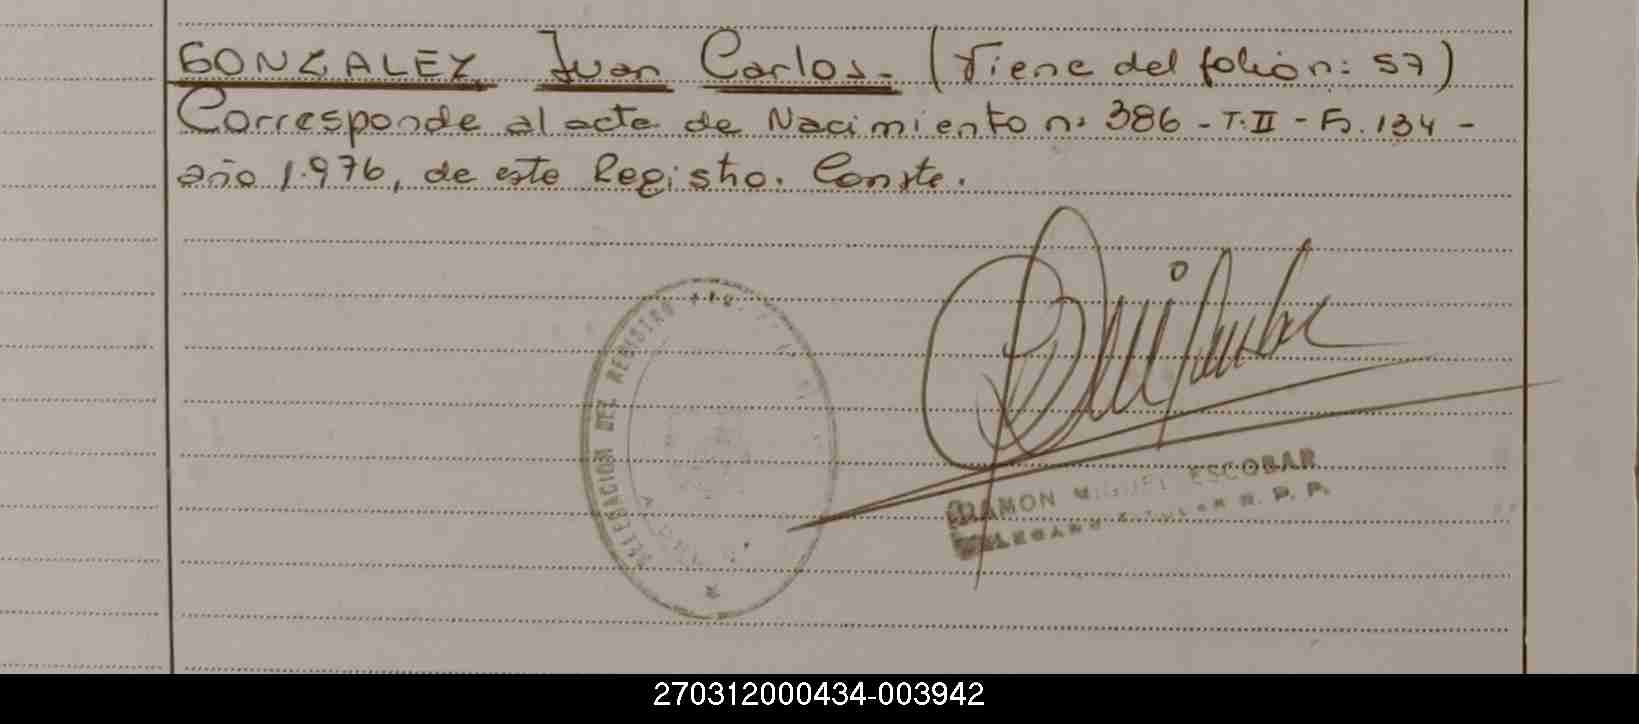 GONZALEZ Juan Carlos.- (Viene del folio n: 57)
Corresponde al acta de Nacimiento n: 386 - T.II - Fo. 134 -
año 1.976, de este Registro. Conste.
DELEGACION DEL REGISTRO
RAMON MIGUEL ESCOBAR
R. P. P.
270312000434-003942